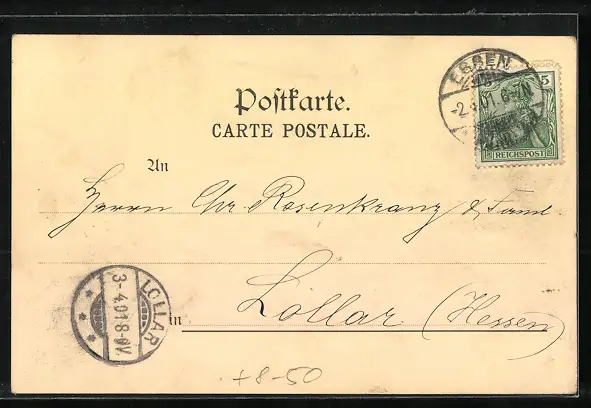 ESSEN
-2.4.01. 6-7N
5
REICHSPOST
Postkarte.
CARTE POSTALE.
An
Herrn Chr. Rosenkranz & Fam.
LOLLAR
3-4 01 8-9V.
in Lollar (Hessen)
+8-50